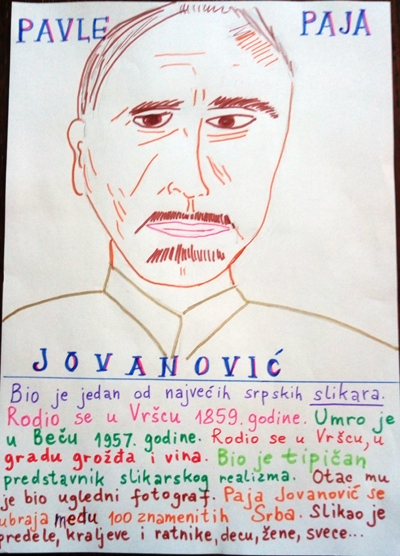 PAVLE PAJA
JOVANOVIĆ
Bio je jedan od najvećih srpskih slikara.
Rodio se u Vršcu 1859. godine. Umro je
u Beču 1957. godine. Rodio se u Vršcu, u
gradu grožđa i vina. Bio je tipičan
predstavnik slikarskog realizma. Otac mu
je bio ugledni fotograf. Paja Jovanović se
ubraja među 100 znamenitih Srba. Slikao je
predele, kraljeve i ratnike, decu, žene, svece...